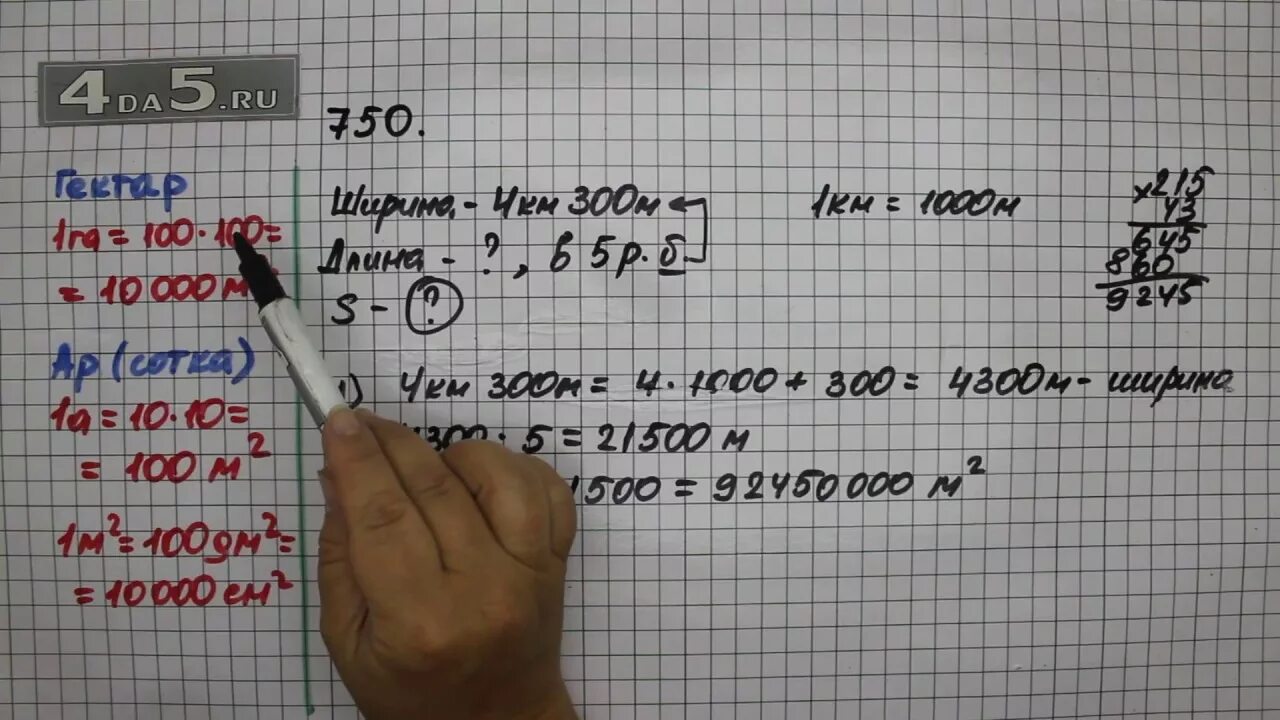 4DA5.RU
750.
Гектар
1га = 100 · 100 =
= 10 000 м
Ар (сотка)
1а = 10 · 10 =
= 100 м²
1м² = 100дм² =
= 10 000 см²
Ширина - 4км 300м
Длина - ?, в 5р. б
S - ?
1км = 1000м
× 215
43
645
860
9245
1) 4км 300м = 4 · 1000 + 300 = 4300м - ширина
4300 · 5 = 21500 м
1500 = 92450000 м²